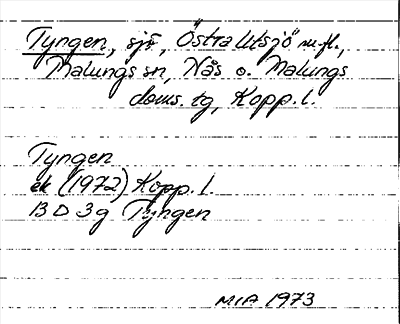 Tyngen, sjö, Östra Utsjö m.fl.,
Malungs sn, Nås o. Malungs
doms. tg, Kopp. l.
Tyngen
ek (1972) Kopp. l.
13 D 3g Tyngen
MIA 1973